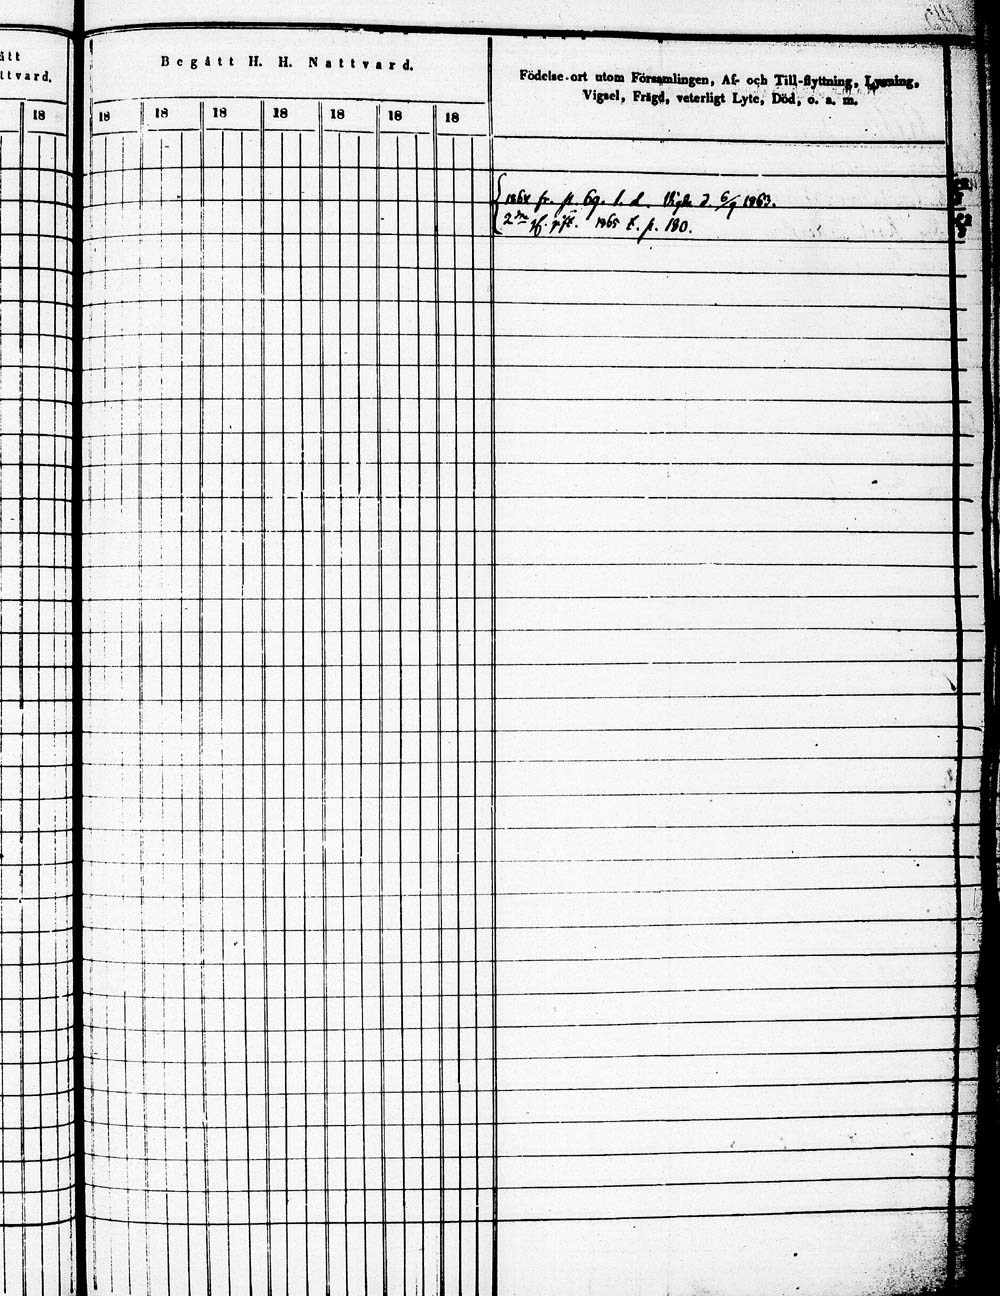 ått
ttvard.
18
Begått H. H. Nattvard.
18 18 18 18 18 18 18
Födelse-ort utom Församlingen, Af- och Till-flyttning, Lysning,
Vigsel, Frägd, veterligt Lyte, Död, o. s. m.
1864 fr. p. 69. l. d. Vigde d. 6/9 1863.
2 gift. 1865 t. p. 180.